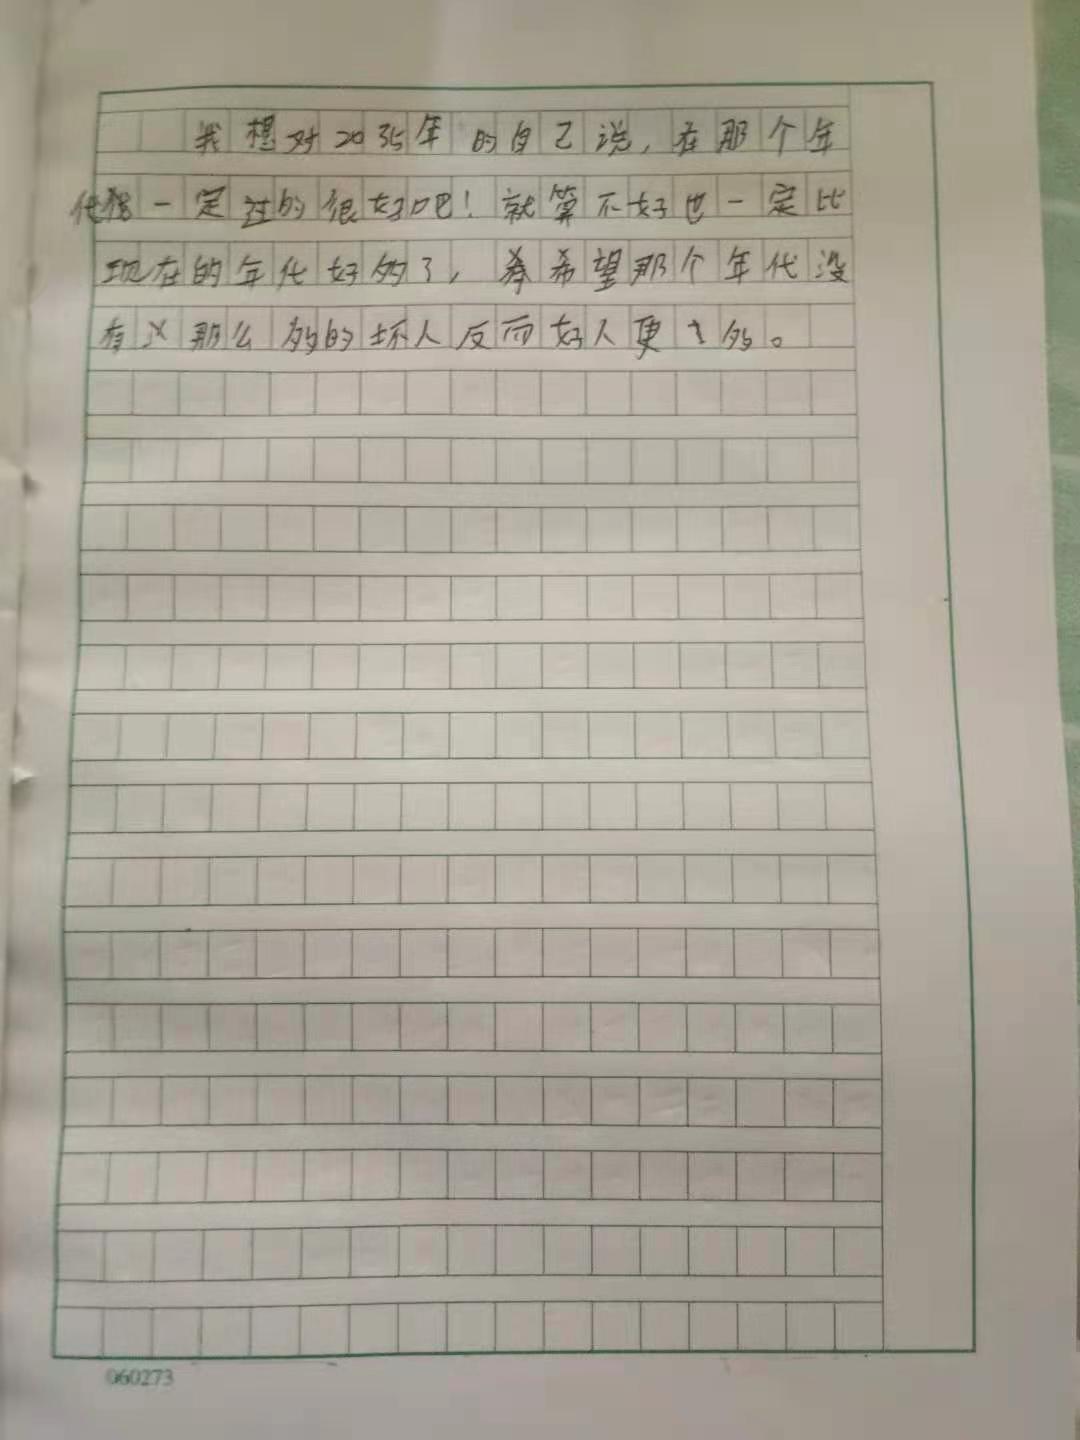 我想对2035年的自己说，在那个年
代你一定过的很好吧！就算不好也一定比
现在的年代好多了，希望那个年代没
有那么多的坏人反而好人更多。
060273